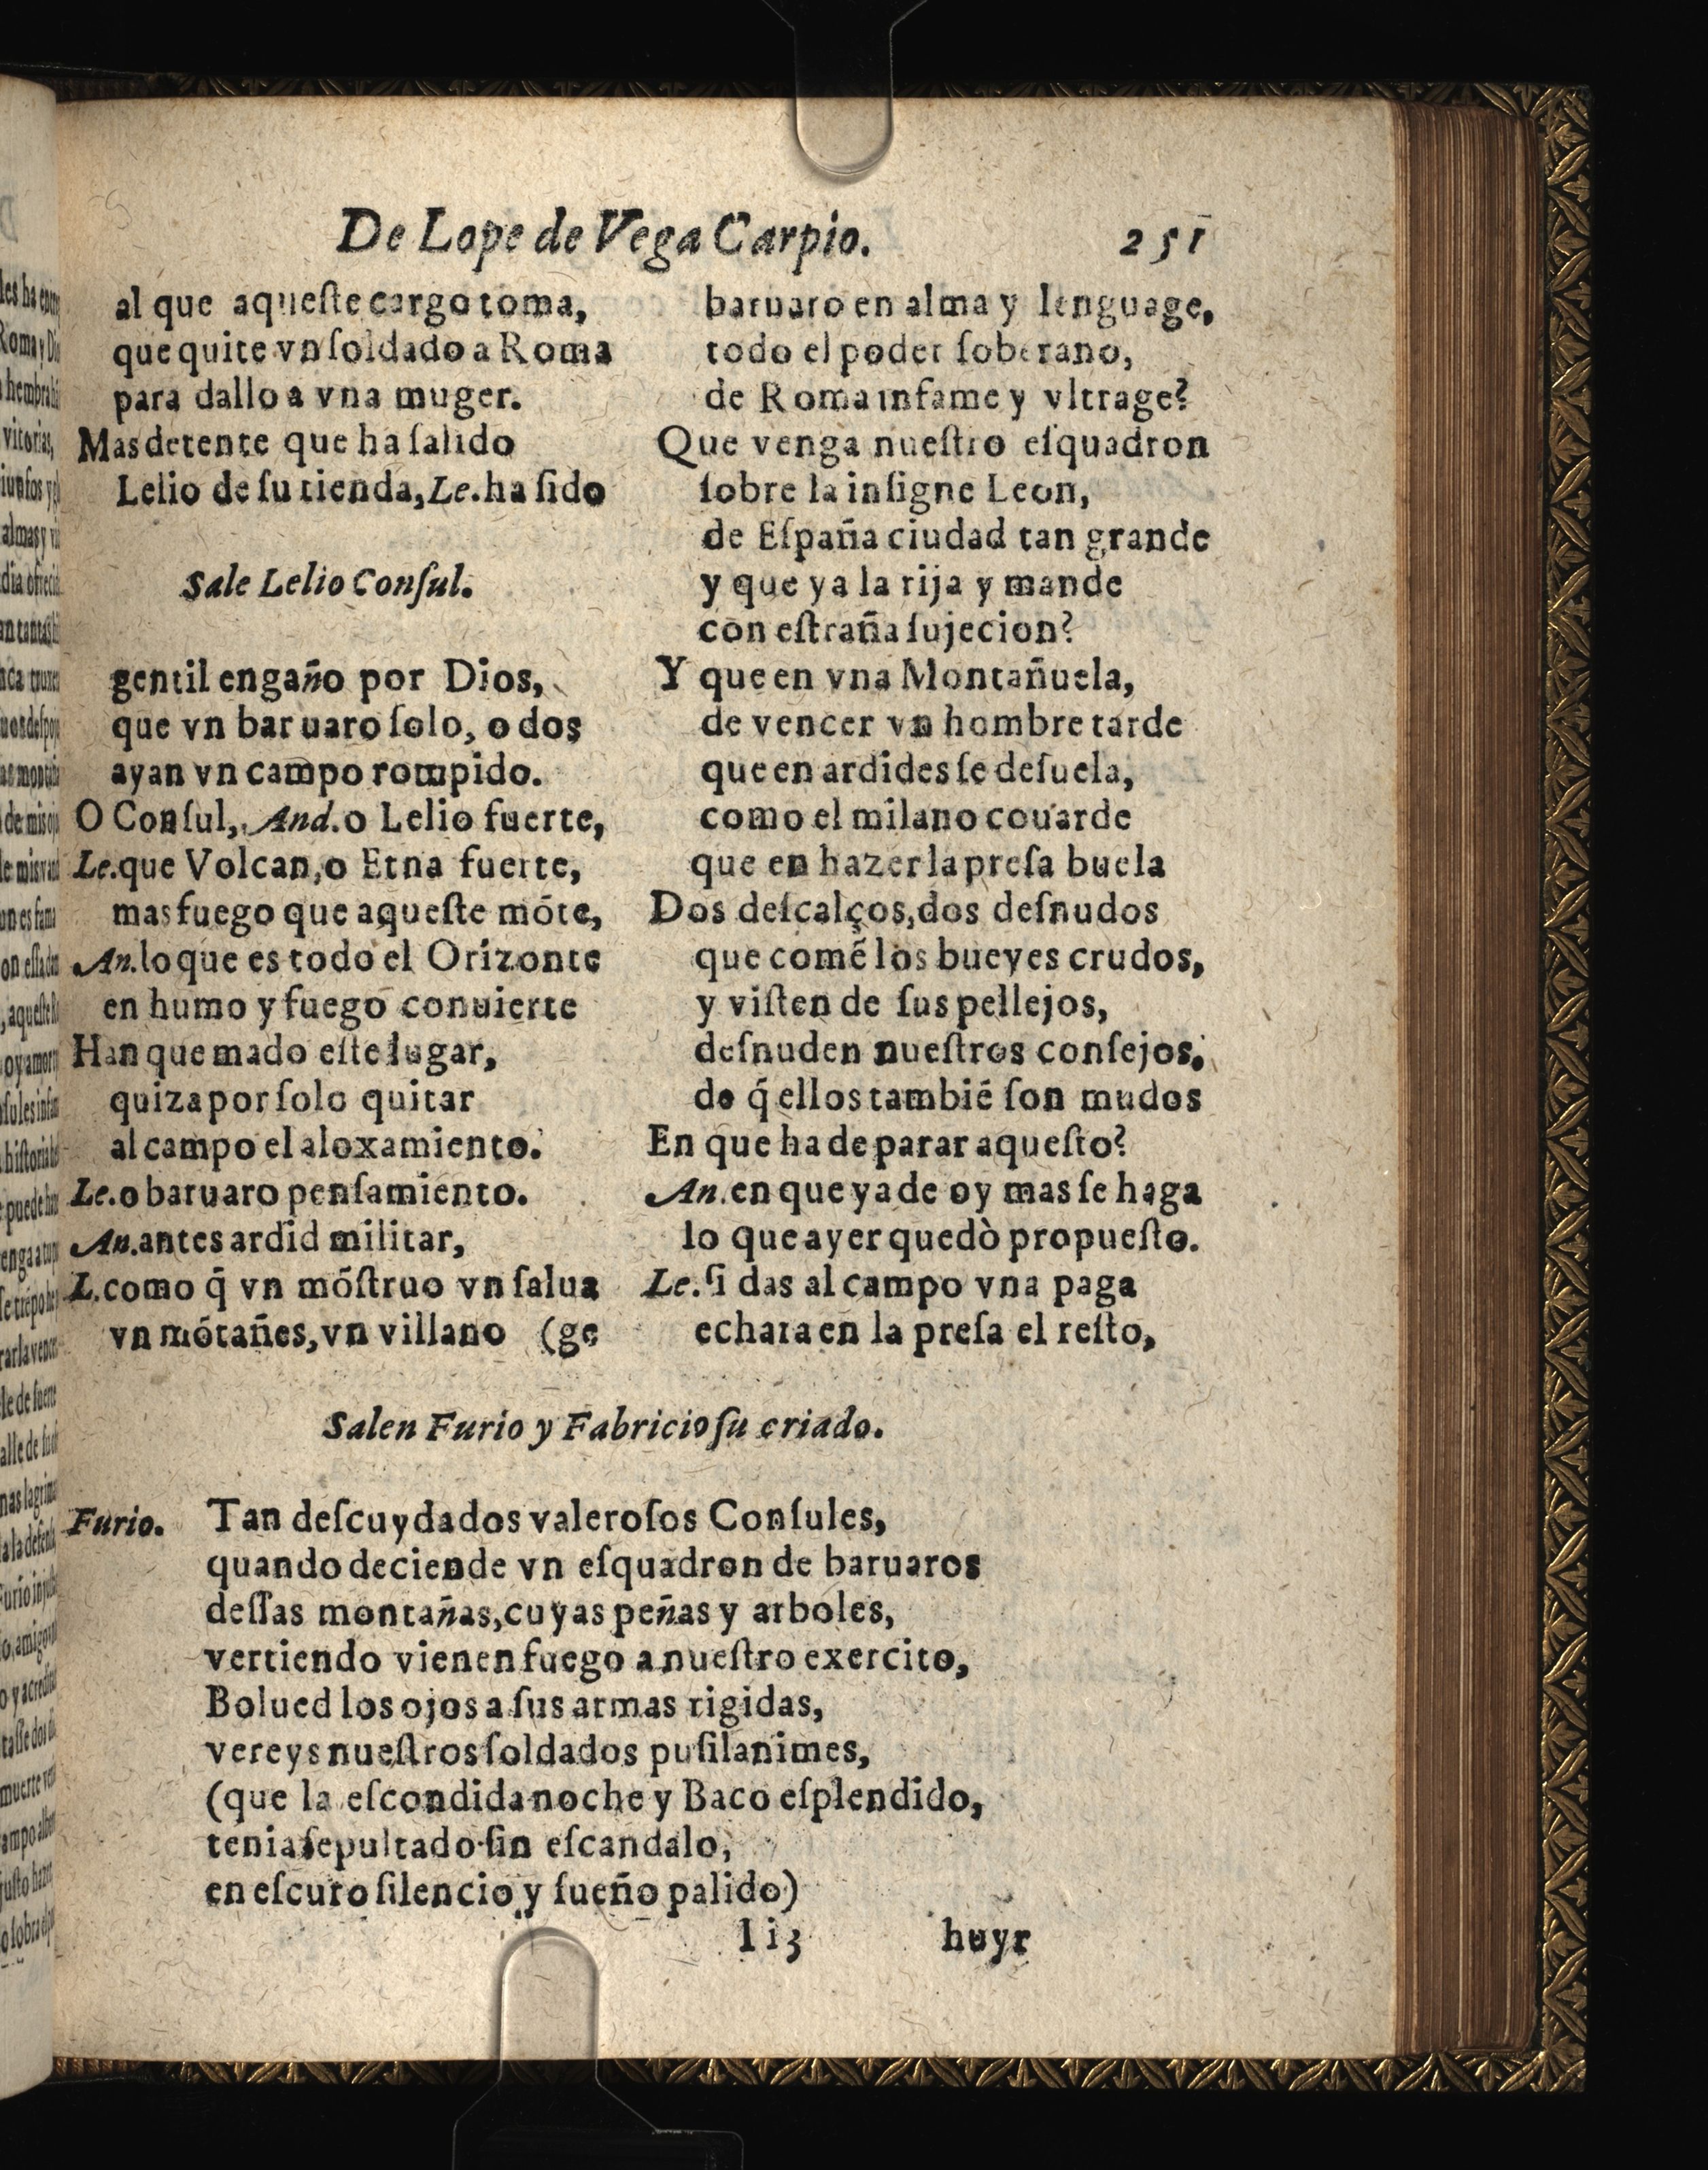 De Lope de Vega Carpio. 251
al que aqueſte cargo toma,
que quite vn ſoldado a Roma
para dallo a vna muger.
Mas detente que ha ſalido
Lelio de ſu tienda, Le. ha ſido
Sale Lelio Conſul.
gentil engaño por Dios,
que vn baruaro ſolo, o dos
ayan vn campo rompido.
O Conſul, And. o Lelio fuerte,
Le. que Volcan, o Etna fuerte,
mas fuego que aqueſte móte,
An. lo que es todo el Orizonte
en humo y fuego conuierte
Han quemado eſte lugar,
quiza por ſolo quitar
al campo el aloxamiento.
Le. o baruaro penſamiento.
An. antes ardid militar,
L. como q̃ vn móſtruo vn ſalua
vn mótañes, vn villano (ge
baruaro en alma y lenguage,
todo el poder ſoberano,
de Roma infame y vltrage?
Que venga nueſtro eſquadron
ſobre la inſigne Leon,
de Eſpaña ciudad tan grande
y que ya la rija y mande
con eſtraña ſujecion?
Y que en vna Montañuela,
de vencer vn hombre tarde
que en ardides ſe deſuela,
como el milano couarde
que en hazer la preſa buela
Dos deſcalços, dos deſnudos
que comẽ los bueyes crudos,
y viſten de ſus pellejos,
deſnuden nueſtros conſejos,
de q́ ellos tambié ſon mudos
En que ha de parar aqueſto?
An. en que ya de oy mas ſe haga
lo que ayer quedò propueſto.
Le. ſi das al campo vna paga
echara en la preſa el reſto,
Salen Furio y Fabricio ſu criado.
Furio. Tan deſcuydados valeroſos Conſules,
quando deciende vn eſquadron de baruaros
deſſas montañas, cuyas peñas y arboles,
vertiendo vienen fuego a nueſtro exercito,
Bolued los ojos a ſus armas rigidas,
vereys nueſtros ſoldados puſilanimes,
(que la eſcondida noche y Baco eſplendido,
tenia ſepultado ſin eſcandalo,
en eſcuro ſilencio y ſueño palido)
Ii3 huyr